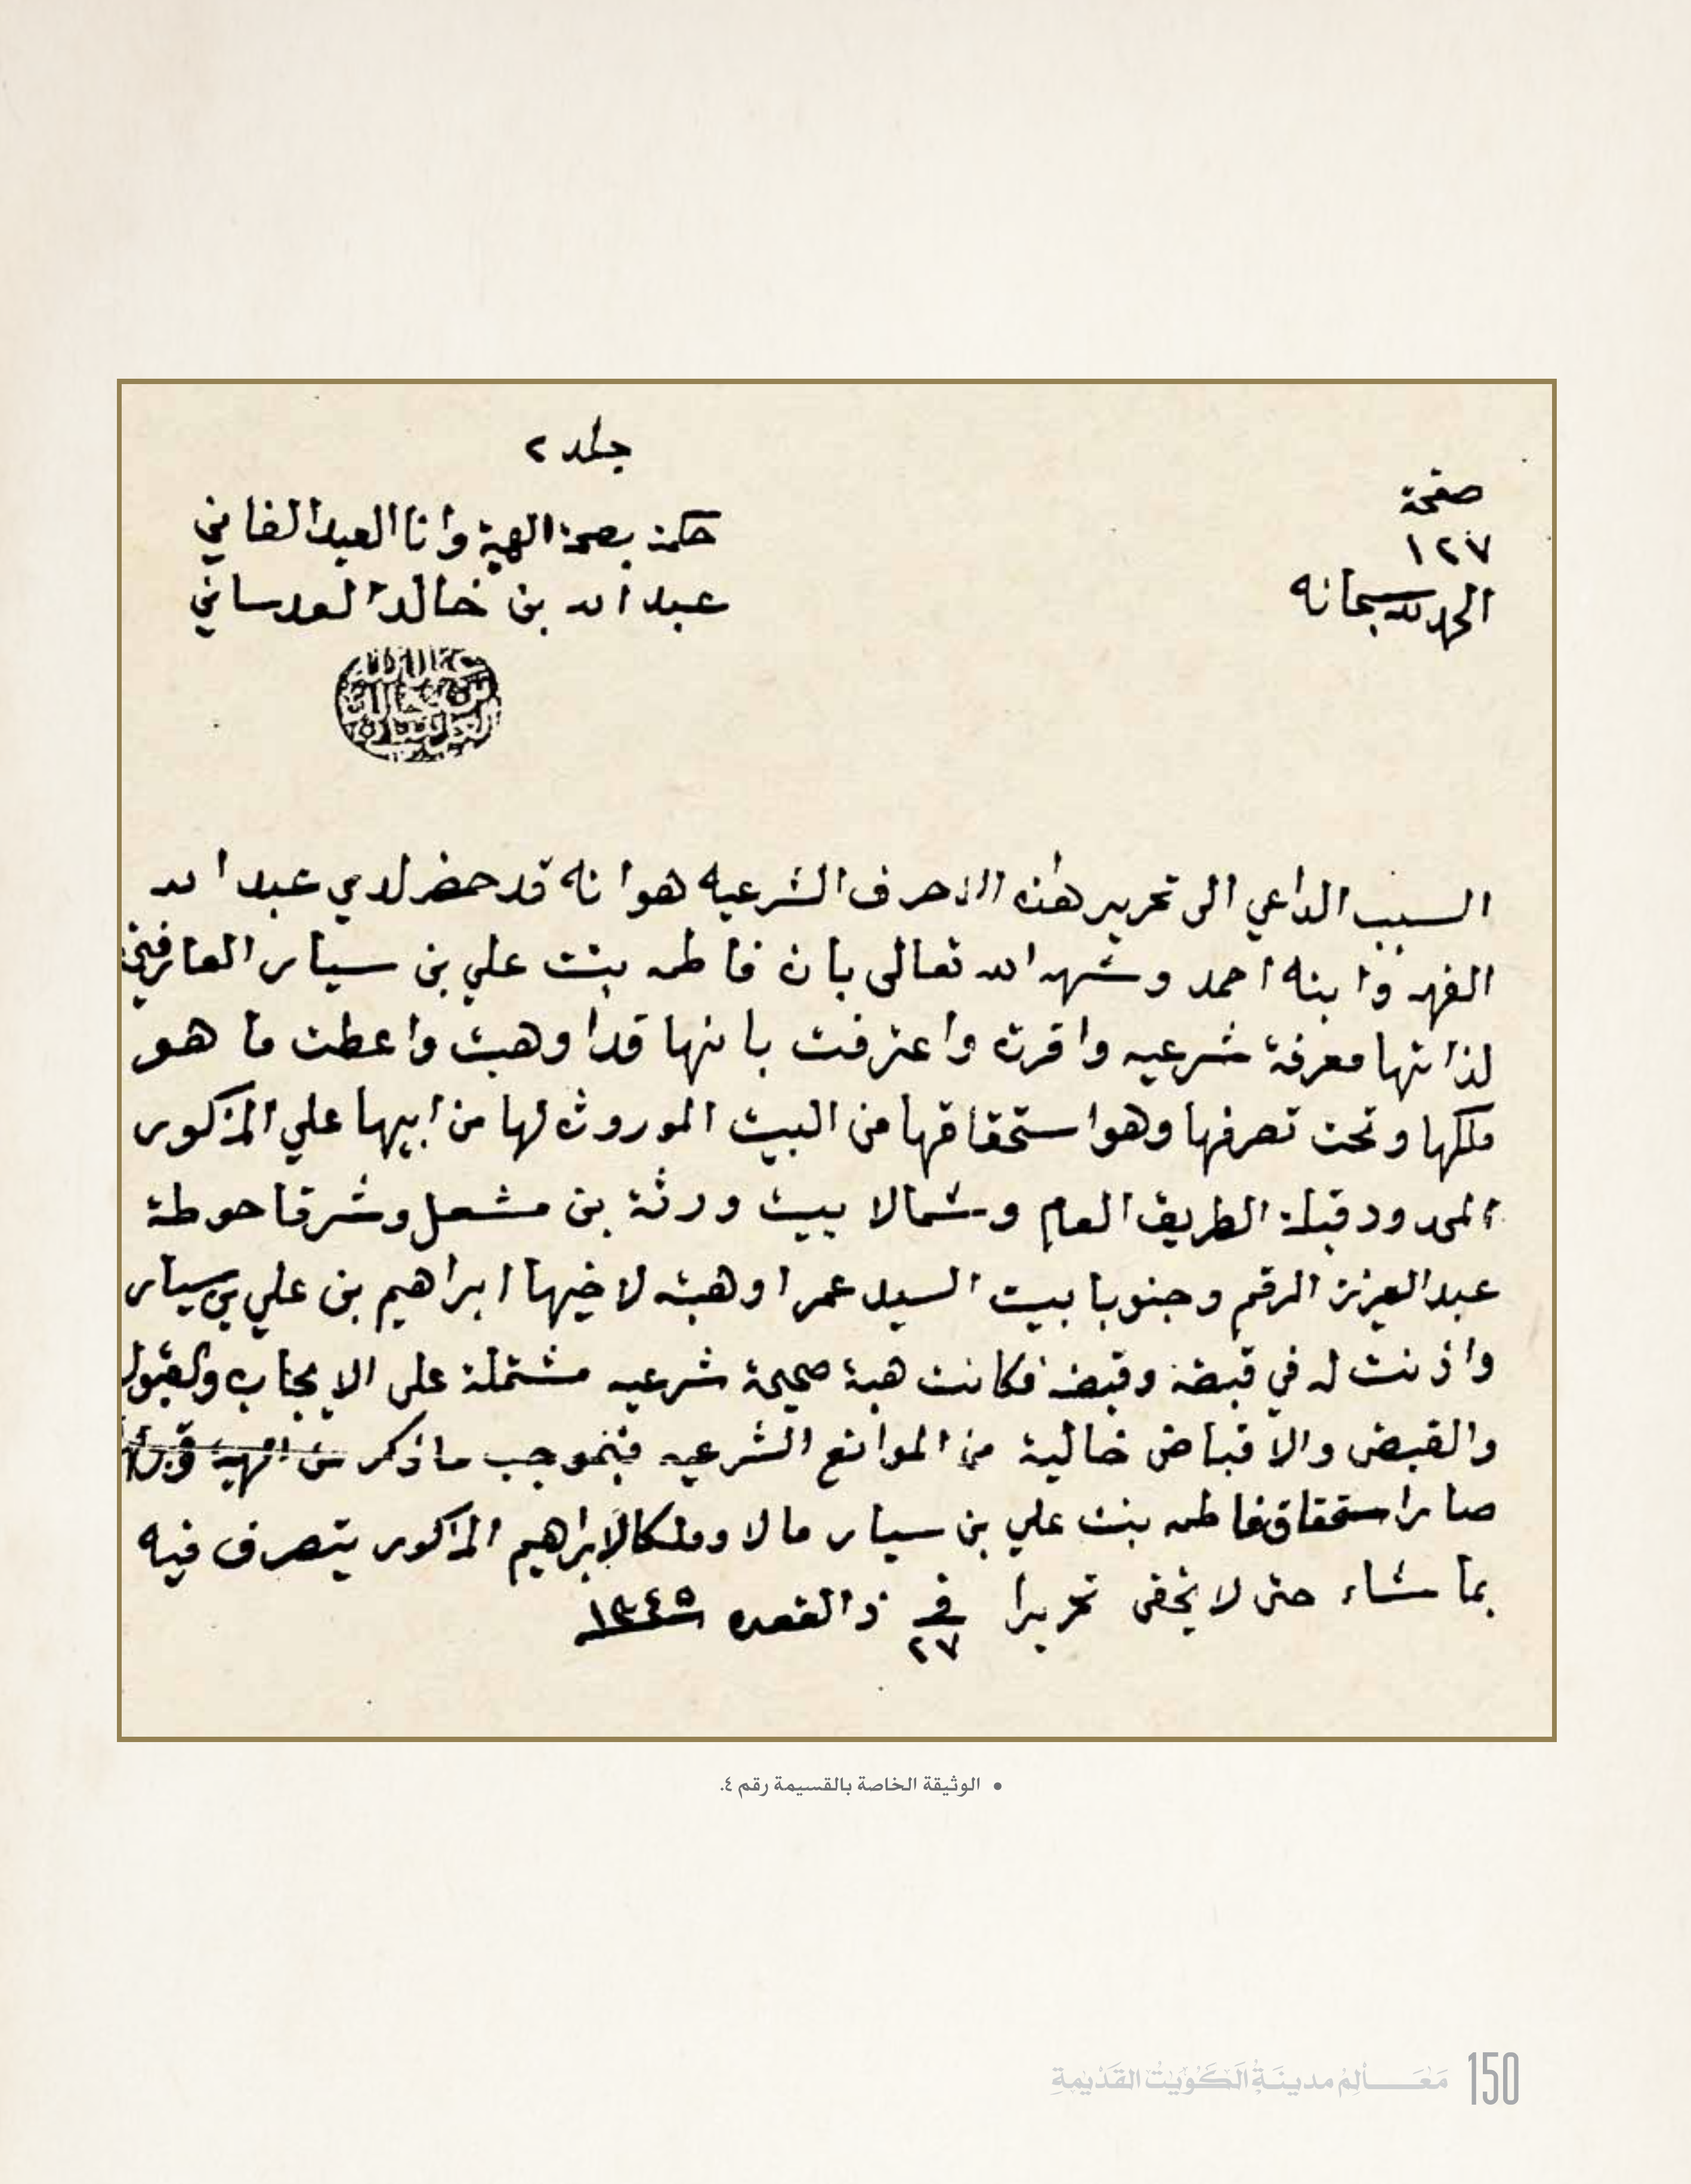 جلد ٢
صفحة
١٢٧
الحمد لله سبحانه
حكمت بصحة الهبة وانا العبد الفاني
عبد الله بن خالد العدساني
عبد الله
بن خالد
العدساني
السبب الداعي الى تحرير هذه الاحرف الشرعيه هو انه قد حضر لدي عبد الله
الفهد وابنه احمد وشهد الله تعالى بان فاطمه بنت علي بن سيار العارفين
لذاتها معرفة شرعيه واقرت واعترفت بانها قد اوهبت واعطت ما هو
ملكها وتحت تصرفها وهو استحقاقها من البيت الموروث لها من ابيها علي المذكور
المحدود قبلة الطريق العام وشمالا بيت ورثة بن مشعل وشرقا حوطة
عبد العزيز الرقم وجنوبا بيت السيد عمر اوهبته لاخيها ابراهيم بن علي بن سيار
واذنت له في قبضه وقبضه فكانت هبة صحيحة شرعيه مشتملة على الايجاب والقبول
والقبض والاقباض خالية من الموانع الشرعيه فبموجب ما ذكر من الهبة
صار استحقاق فاطمه بنت علي بن سيار مالا وملكا لابراهيم المذكور يتصرف فيه
بما شاء حتى لا يخفى تحريرا في ٢٧ ذ القعده ١٣٤٥
• الوثيقة الخاصة بالقسيمة رقم ٤.
150 مَعَالِمُ مدينَةِ الكُوَيْت القَدْيمَةِ